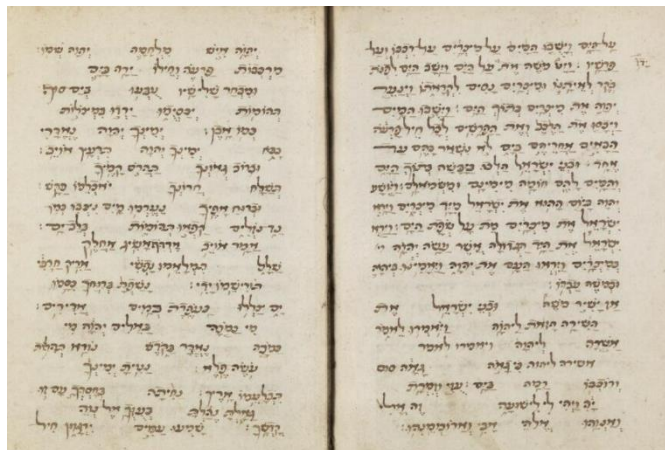 על הים וישבו המים על מצרים על רכבו ועל
פרשיו : ויט משה את על הים וישב הים לפנות
ידו
בקר לאיתנו ומצרים נסים לקראתו וינער
יהוה את מצרים בתוך הים : וישבו המים
ויכסו את הרכב ואת הפרשים לכל חיל פרעה
הבאים אחריהם בים לא נשאר בהם עד
אחד : ובני ישראל הלכו ביבשה בתוך הים
והמים להם חומה מימינם ומשמאלם : ויושע
יהוה ביום ההוא את ישראל מיד מצרים וירא
ישראל את מצרים מת על שפת הים : וירא
ישראל את היד הגדולה אשר עשה יהוה
במצרים וייראו העם את יהוה ויאמינו ביהוה
ובמשה עבדו :
אז ישיר משה ובני ישראל את
השירה הזאת ליהוה ויאמרו לאמר
אשירה ליהוה ויאמרו לאמר
אשירה ליהוה כי גאה גאה סוס
ורוכבו רמה בים : עזי וזמרת
יה ויהי לי לישועה זה אלי
ואנוהו אלהי אבי וארוממנהו :
יהוה איש מלחמה יהוה שמו :
מרכבות פרעה וחילו ירה בים
ומבחר שלישיו טבעו בים סוף :
תהומות יכסיומו ירדו במצולות
כמו אבן : ימינך יהוה נאדרי
בכח ימינך יהוה תרעץ אויב :
וברוב גאונך תהרס קמיך
תשלח חרונך יאכלמו כקש :
וברוח אפיך נערמו מים נצבו כמו
נד נוזלים קפאו תהומות בלב ים :
אמר אויב ארדף אשיג אחלק
שלל תמלאמו נפשי אריק חרבי
תורישמו ידי : נשפת ברוחך כסמו
ים צללו כעופרת במים אדירים :
מי כמכה באלים יהוה מי
כמכה נאדר בקדש נורא תהלות
עשה פלא : נטית ימינך
תבלעמו ארץ : נחית בחסדך עם זו
גאלת נהלת בעזך אל נוה
קדשך : שמעו עמים ירגזון חיל